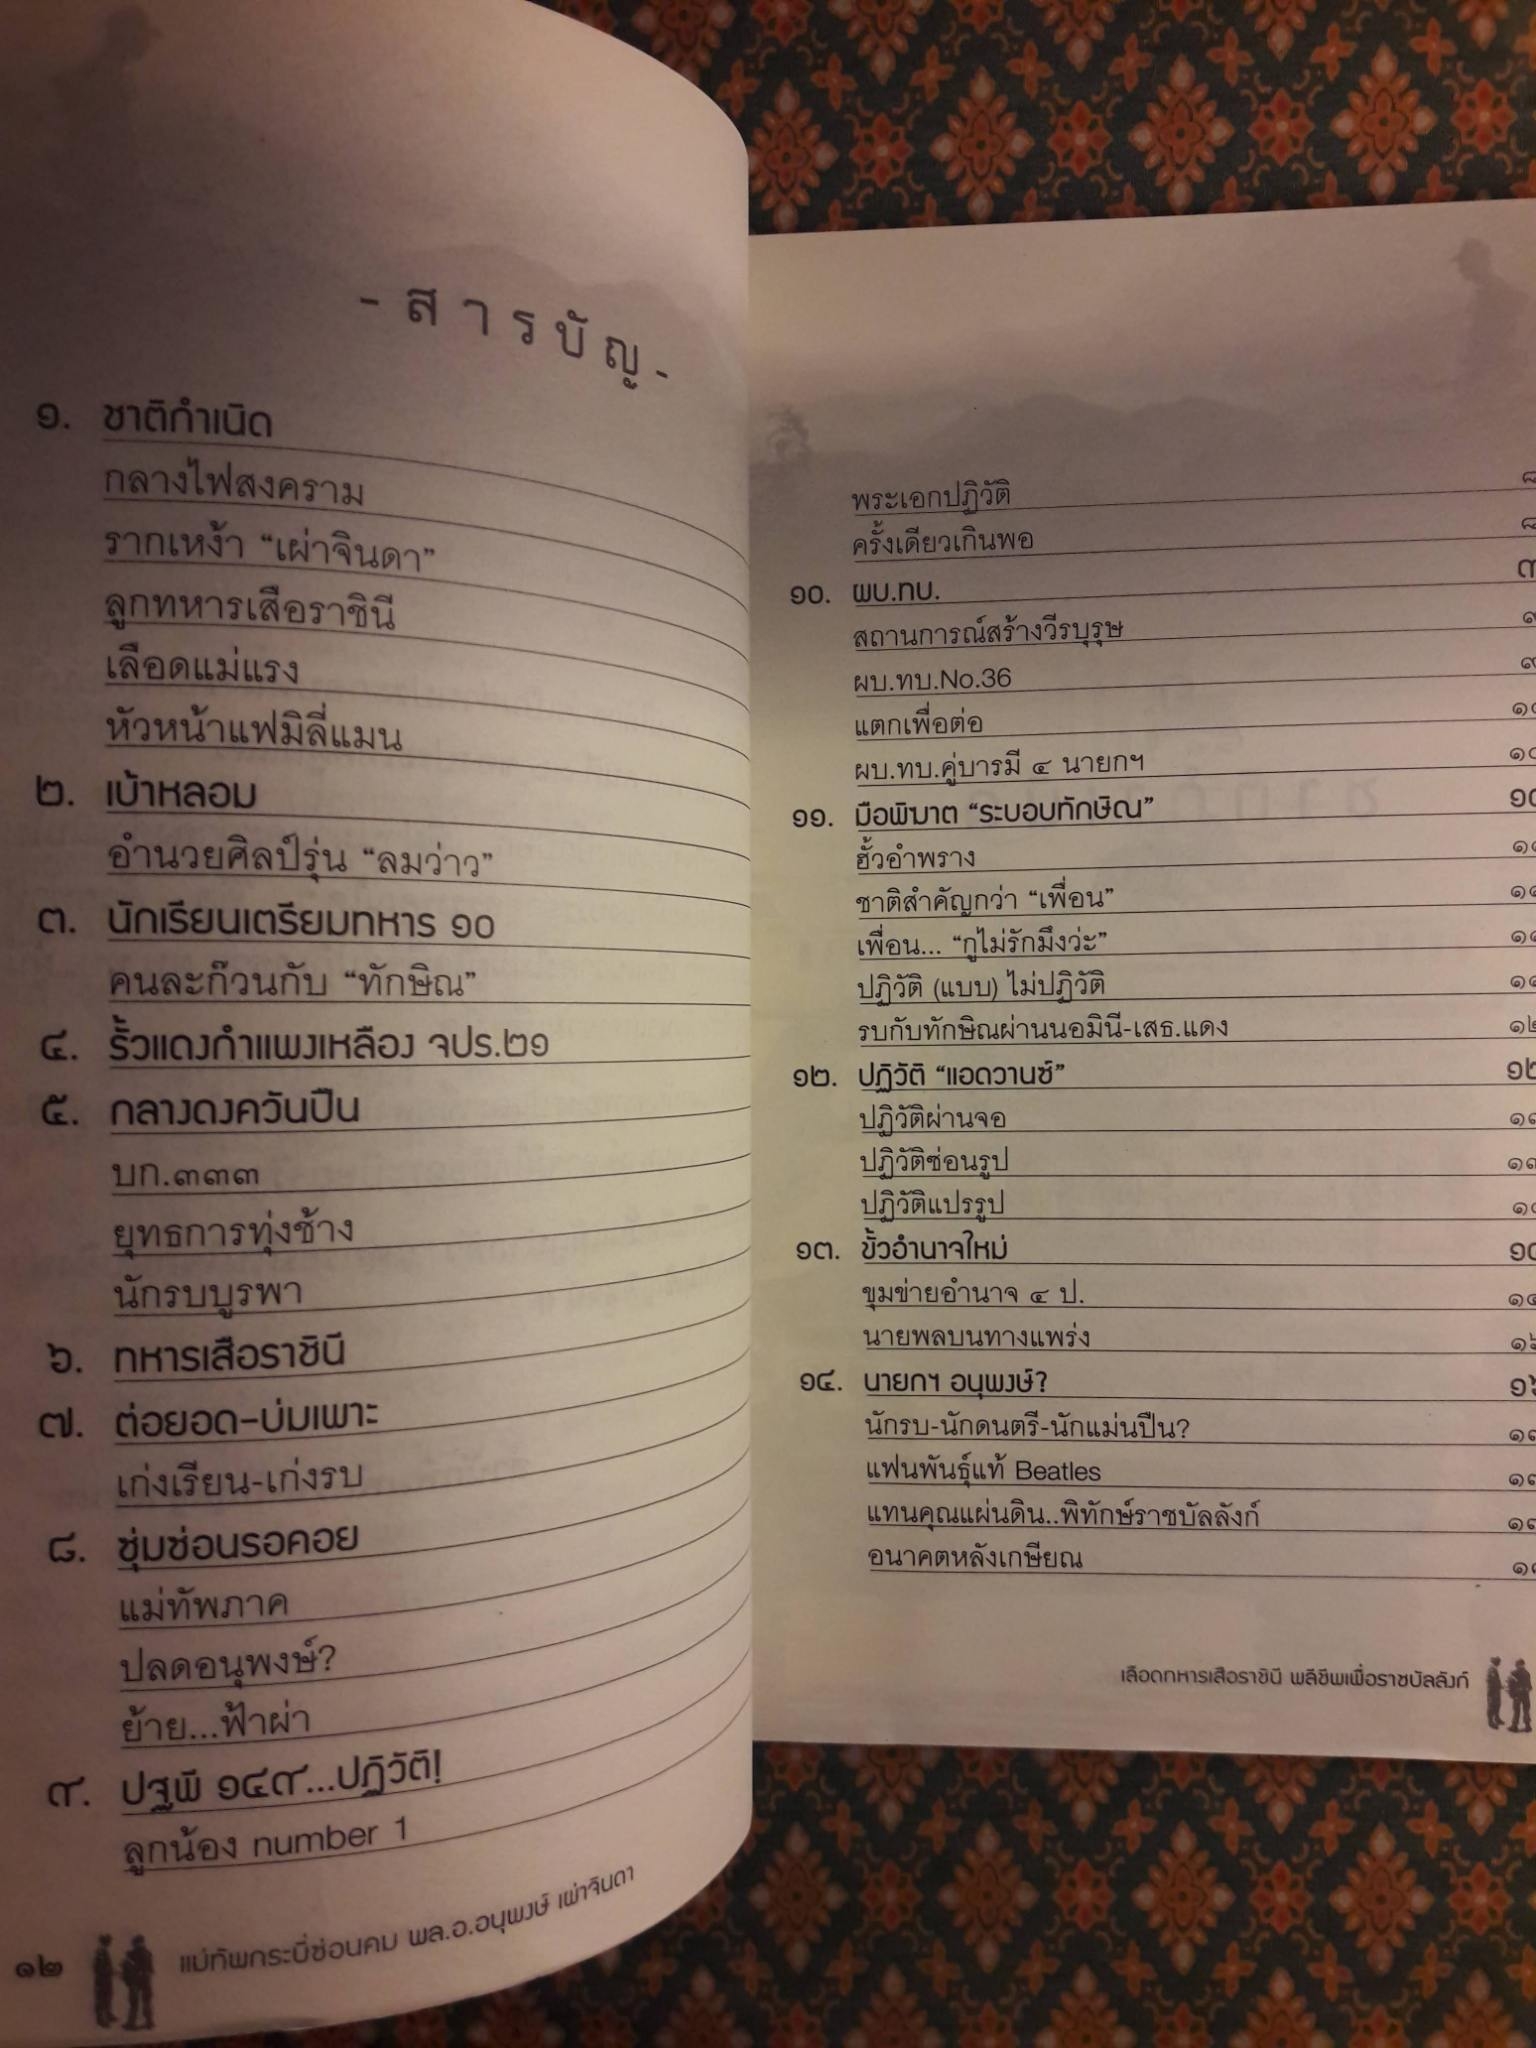 - สารบัญ -
๑. ชาติกำเนิด
กลางไฟสงคราม
รากเหง้า “เผ่าจินดา”
ลูกทหารเสือราชินี
เลือดแม่แรง
หัวหน้าแฟมิลี่แมน
๒. เบ้าหลอม
อำนวยศิลป์รุ่น “ลมว่าว”
๓. นักเรียนเตรียมทหาร ๑๐
คนละก๊วนกับ “ทักษิณ”
๔. รั้วแดงกำแพงเหลือง จปร.๒๑
๕. กลางดงควันปืน
บก.๓๓๓
ยุทธการทุ่งช้าง
นักรบบูรพา
๖. ทหารเสือราชินี
๗. ต่อยอด-บ่มเพาะ
เก่งเรียน-เก่งรบ
๘. ซุ่มซ่อนรอคอย
แม่ทัพภาค
ปลดอนุพงษ์?
ย้าย...ฟ้าผ่า
๙. ปฐพี ๑๔๙...ปฏิวัติ!
ลูกน้อง number 1
๑๒ แม่ทัพกระบี่ซ่อนคม พล.อ.อนุพงษ์ เผ่าจินดา
พระเอกปฏิวัติ
ครั้งเดียวเกินพอ
๑๐. ผบ.ทบ.
สถานการณ์สร้างวีรบุรุษ
ผบ.ทบ.No.36
แตกเพื่อต่อ
ผบ.ทบ.คู่บารมี ๔ นายกฯ
๑๑. มือพิฆาต “ระบอบทักษิณ”
ฮั้วอำพราง
ชาติสำคัญกว่า “เพื่อน”
เพื่อน... “กูไม่รักมึงว่ะ”
ปฏิวัติ (แบบ) ไม่ปฏิวัติ
รบกับทักษิณผ่านนอมินี-เสธ.แดง
๑๒. ปฏิวัติ “แอดวานซ์”
ปฏิวัติผ่านจอ
ปฏิวัติซ่อนรูป
ปฏิวัติแปรรูป
๑๓. ขั้วอำนาจใหม่
ขุมข่ายอำนาจ ๔ ป.
นายพลบนทางแพร่ง
๑๔. นายกฯ อนุพงษ์?
นักรบ-นักดนตรี-นักแม่นปืน?
แฟนพันธุ์แท้ Beatles
แทนคุณแผ่นดิน..พิทักษ์ราชบัลลังก์
อนาคตหลังเกษียณ
เลือดทหารเสือราชินี พลีชีพเพื่อราชบัลลังก์